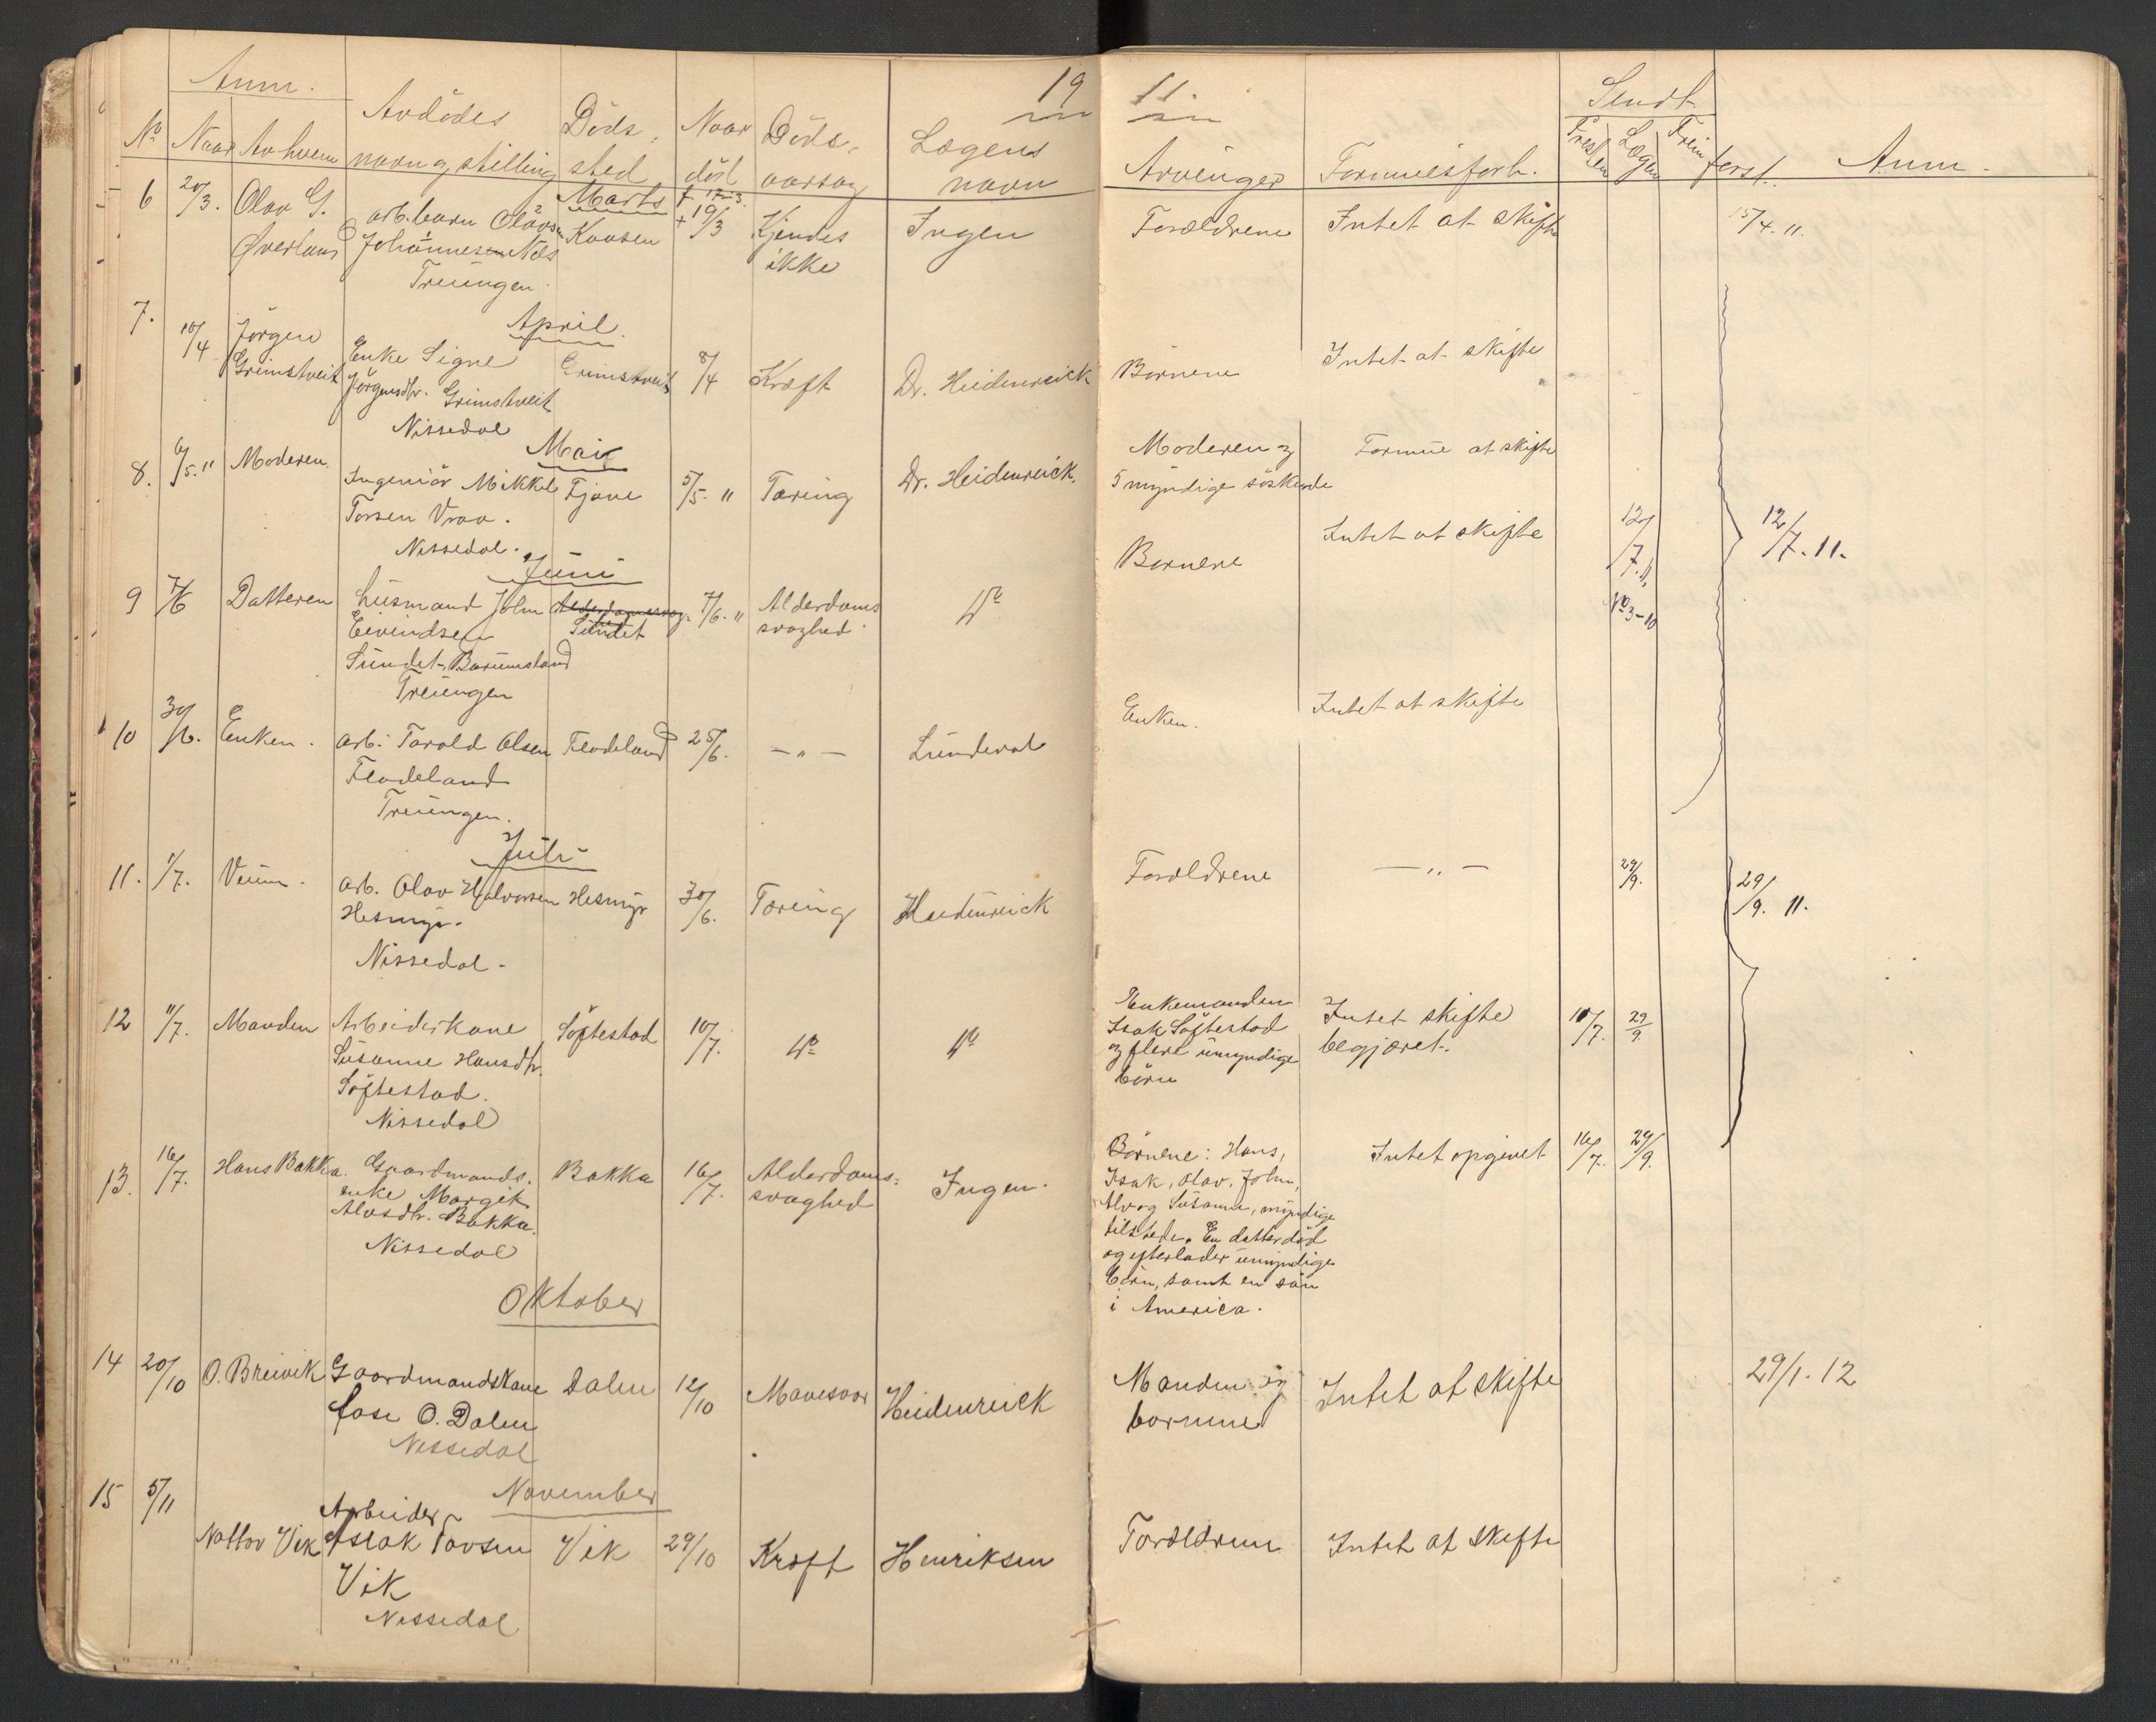 19 11.
Anm. Sendt
No Naar Av hvem Avdödes navn og stilling Döds sted Naar död Döds- aarsag Lægens navn Arvinger Formuesforh. Presten Lægen Anm.
Marts
6 20/3. Olav G. arb. barn Olav Kaasen 19/3 Kjendes Ingen Forældrene Intet at skifte 15/4. 11.
Øverland Johannesen Næs ikke
Treungen.
April.
7. 10/4 Jörgen Enke Signe Grimstveit 8/4 Kræft Dr. Heidenreich Börnene Intet at skifte
Grimstveit Jörgensdtr. Grimstveit
Nissedal
Mai
8. 6/5. 11 Moderen. Ingeniör Mikkel Fjone 5/5. 11 Tæring Dr. Heidenreich. Moderen og Formue at skifte
Torsen Vraa. 5 myndige söskende
Nissedal.
Juni
9 7/6 Datteren husmand John Sundet 7/6. 11 Alderdoms do Bornene Intet at skifte 12/7. 11. 12/7. 11.
Eivindsen svaghed No 3-10
Sundet, Barumsland
Treungen
10 30/6. Enken. arb. Tarald Olsen Fladeland 25/6. — " — Lundeval Enken. Intet at skifte
Fladeland
Treungen.
Juli
11. 1/7. Veum. arb. Olav Halvorsen Hesmyr 30/6. Tæring Heidenreich Forældrene — " — 29/9. 29/9. 11.
Hesmyr.
Nissedal.
12 11/7. Manden Arbeiderkone Söftestad 10/7. do do Enkemanden Intet skifte 11/7. 29/9.
Susanne Hansdtr. Isak Söftestad begjæret.
Söftestad. og flere umyndige
Nissedal börn
13. 16/7. Hans Bakka. Gaardmands- Bakka 16/7. Alderdoms- Ingen. Börnene: Hans, Intet opgivet 16/7. 29/9.
enke Margit svaghed Isak, Olav, John,
Alvsdtr. Bakka. Alv og Susanne, myndige
Nissedal tilstede. En datter död
og efterlader umyndige
börn, samt en sön
i America.
Oktober
14 20/10 O. Breivik Gaardmandskone Dalen 12/10 Mavesaar Heidenreich Manden og Intet at skifte 29/1. 12
Aase O. Dalen bornene
Nissedal
November
15 5/11 Arbeider
Nottov Vik Aslak Tovsen Vik 29/10 Kræft Henriksen Forældrene Intet at skifte
Vik
Nissedal